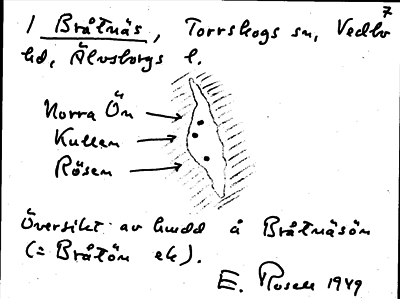 7
I Bråtnäs, Torrskogs sn, Vedbo
hd, Älvsborgs l.
Norra Ön
Kullen
Rösen
Översikt av huvud å Bråtnäsön
(= Bråtön ek).
E. Rosell 1949